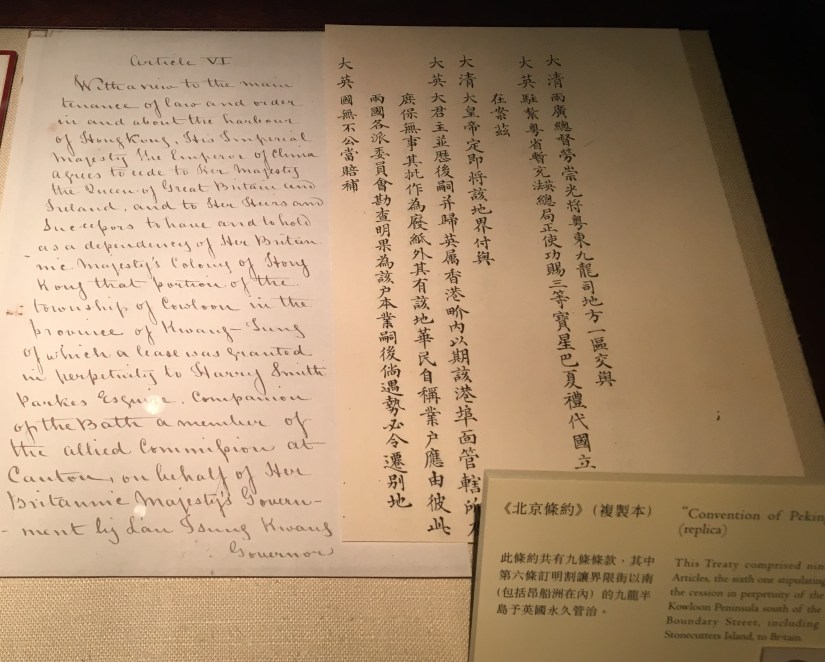 Article VI
With a view to the main
tenance of law and order
in and about the harbour
of Hong Kong, His Imperial
Majesty the Emperor of China
agrees to cede to Her Majesty
the Queen of Great Britain and
Ireland, and to Her Heirs and
Successors to have and to hold
as a dependency of Her Britan-
nic Majesty's Colony of Hong
Kong that portion of the
township of Cowloon in the
province of Kwang-Tung
of which a lease was granted
in perpetuity to Harry Smith
Parkes Esquire, Companion
of the Bath a member of
the allied Commission at
Canton, on behalf of Her
Britannic Majesty's Govern-
-ment by Lau Tsung Kwang
Governor
大清兩廣總督勞崇光將粵東九龍司地方一區交與
大英駐紮粵省暫充法英總局正使功賜三等寶星巴夏禮代國立
在案茲
大清大皇帝定即將該地界付與
大英大君主並歷後嗣并歸英屬香港界內以期該港埠面管轄所
庶保無事其批作為廢紙外其有該地華民自稱業户應由彼此
兩國各派委員會勘查明果為該户本業嗣後倘遇勢必令遷別地
大英國無不公當賠補
《北京條約》(複製本)
此條約共有九條條款，其中
第六條訂明割讓界限街以南
(包括昂船洲在內) 的九龍半
島予英國永久管治。
"Convention of Pekin
(replica)
This Treaty comprised nin
Articles, the sixth one stipulating
the cession in perpetuity of the
Kowloon Peninsula south of the
Boundary Street, including
Stonecutters Island, to Britain.